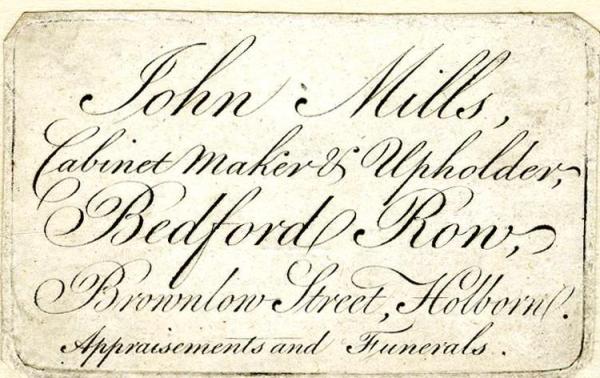 John Mills,
Cabinet Maker & Upholder,
Bedford Row,
Brownlow Street, Holborn.
Appraisements and Funerals.